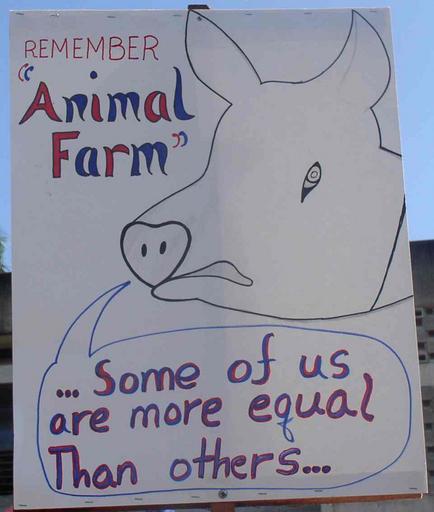 REMEMBER
"Animal
Farm"
... Some of us
are more equal
Than others...